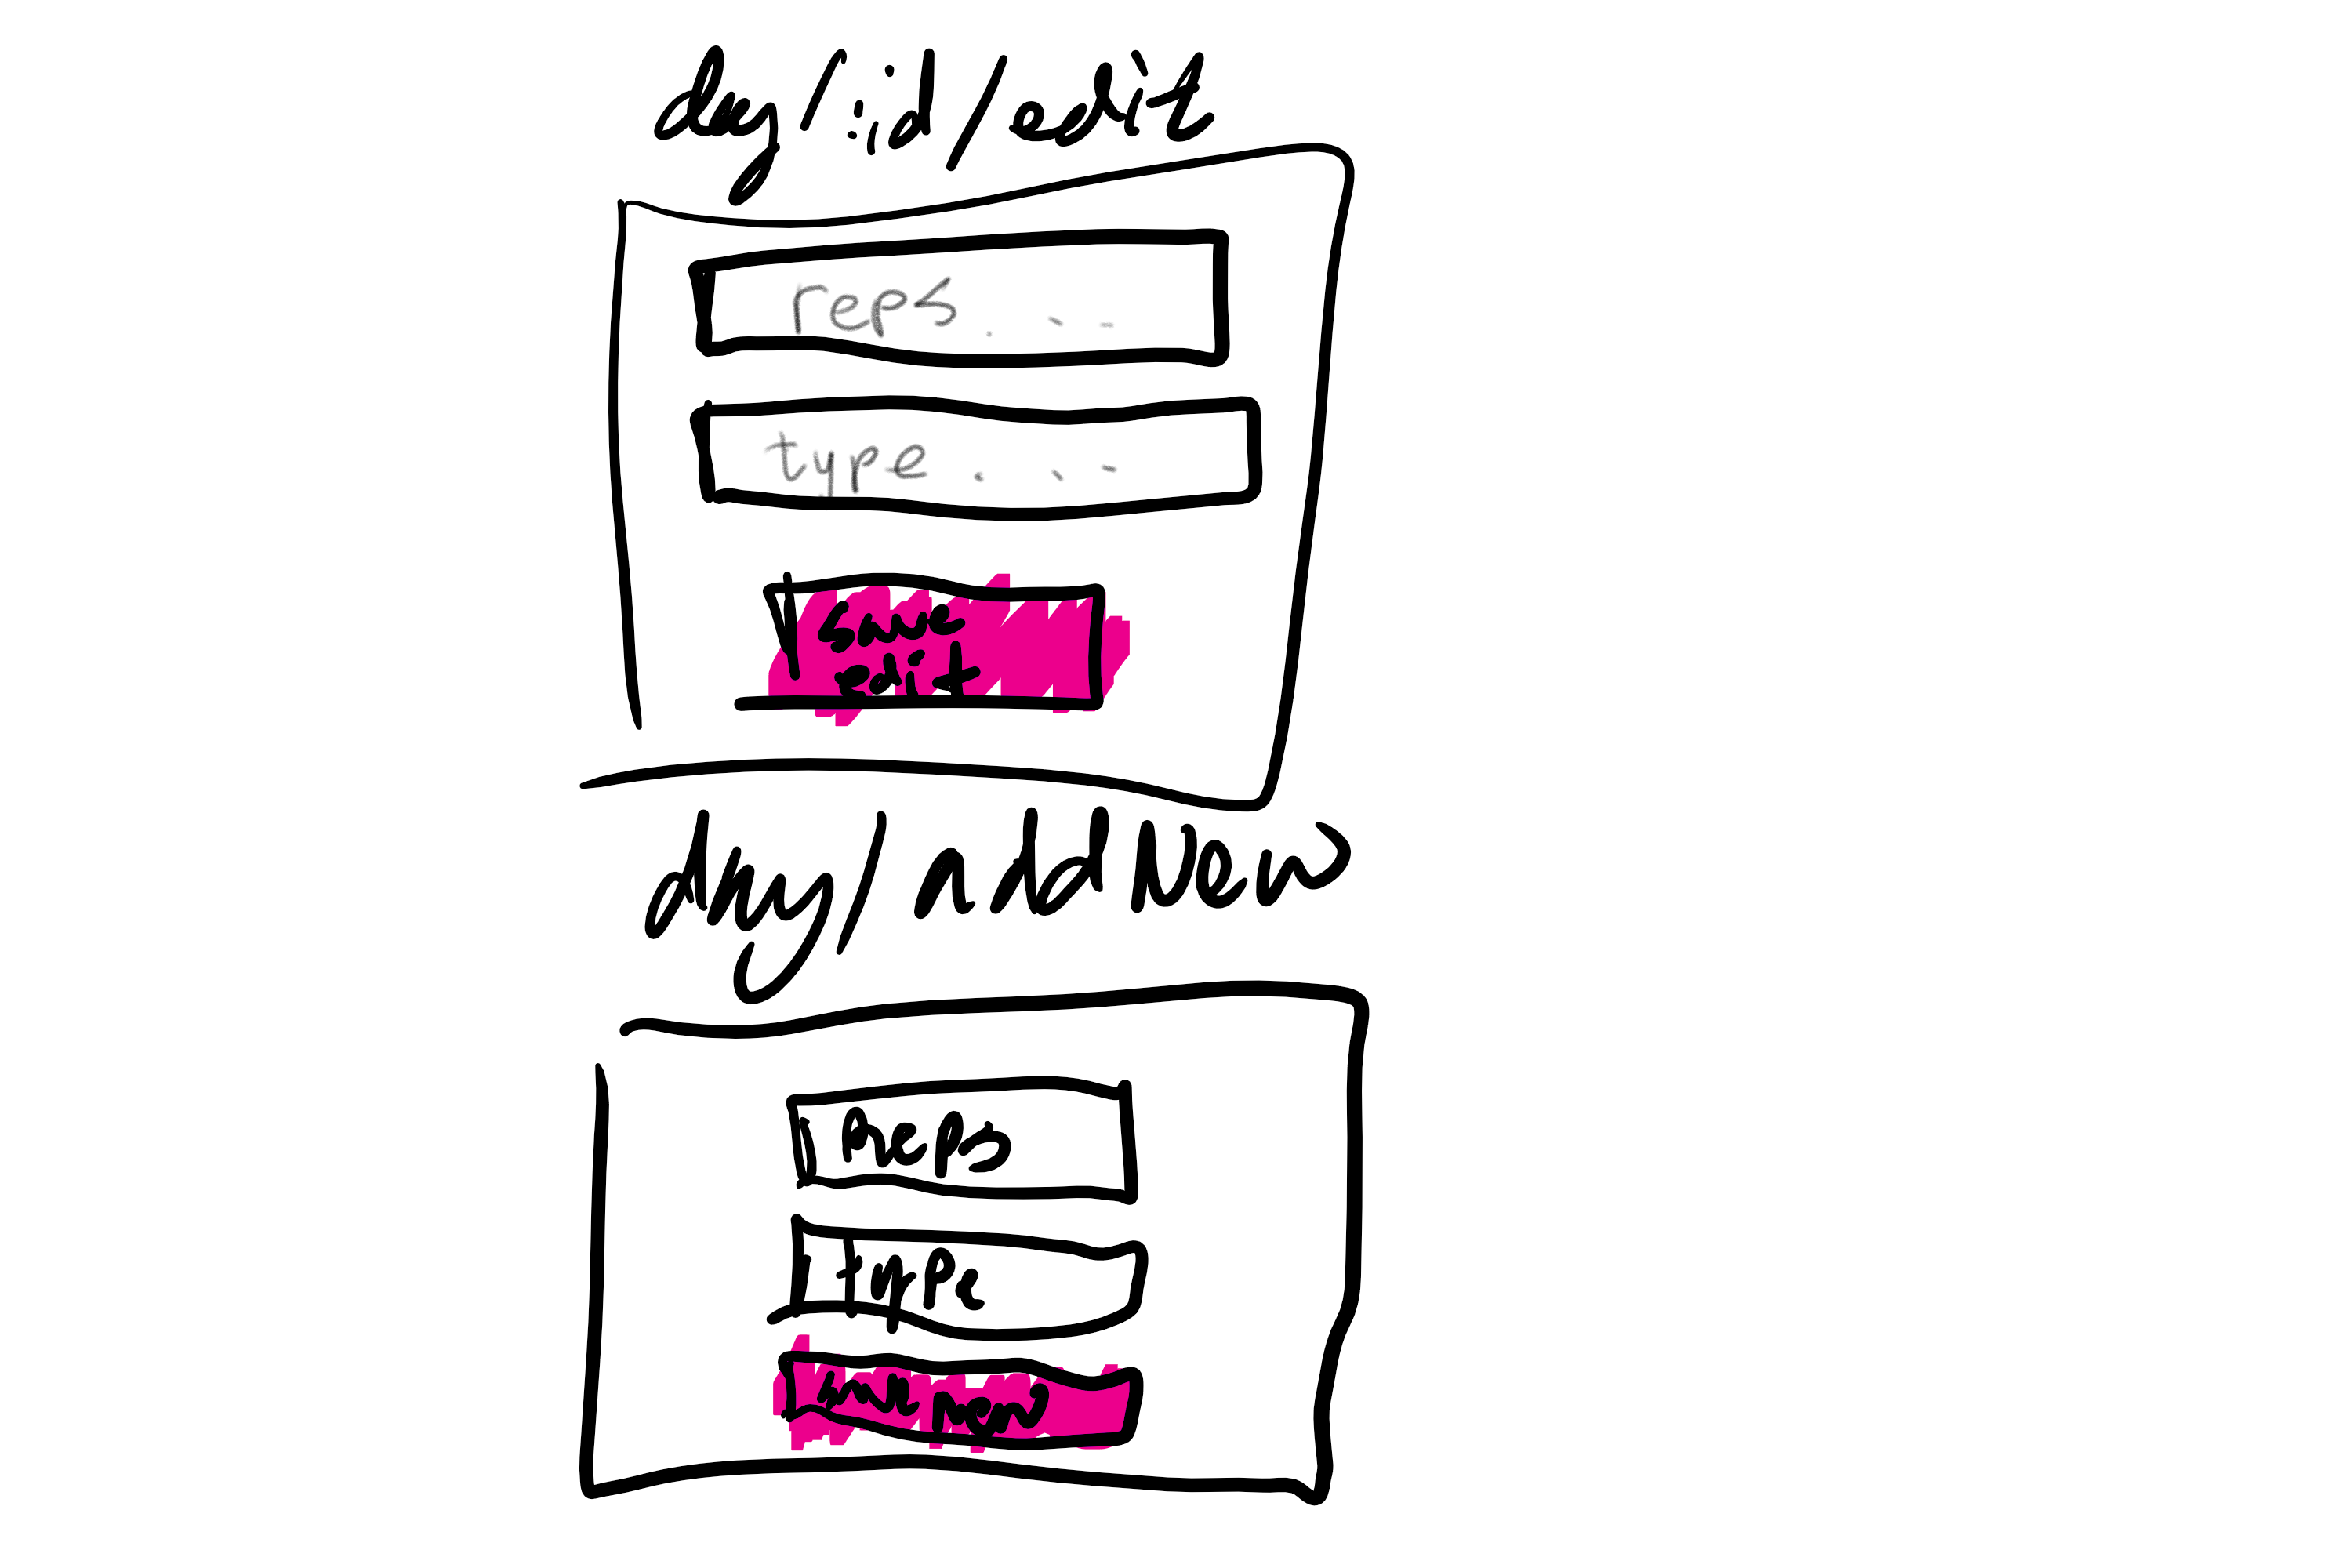 day/:id/edit
reps...
type...
save
edit
day/addNew
Reps
type
save new